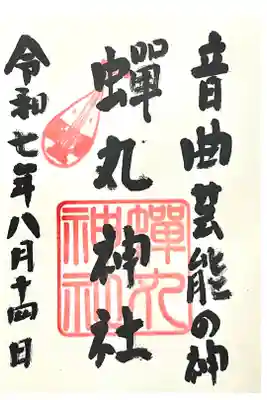 音曲芸能の神
蟬丸神社
蟬丸神社
令和七年八月十四日